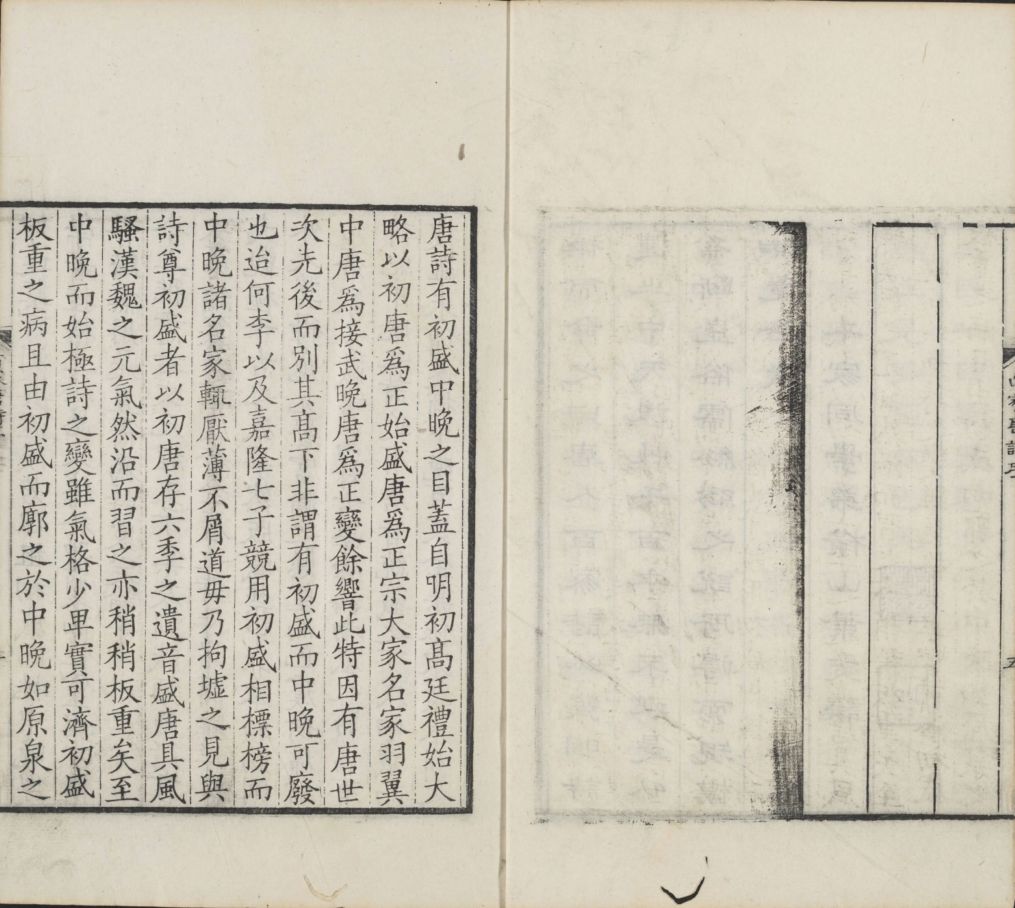 唐詩有初盛中晚之目蓋自明初髙廷禮始大
略以初唐爲正始盛唐爲正宗大家名家羽翼
中唐爲接武晚唐爲正變餘響此特因有唐世
次先後而別其髙下非謂有初盛而中晚可廢
也迨何李以及嘉隆七子競用初盛相標榜而
中晚諸名家輒厭薄不屑道毋乃拘墟之見與
詩尊初盛者以初唐存六季之遺音盛唐具風
騷漢魏之元氣然沿而習之亦稍稍板重矣至
中晚而始極詩之變雖氣格少卑實可濟初盛
板重之病且由初盛而廓之於中晚如原泉之